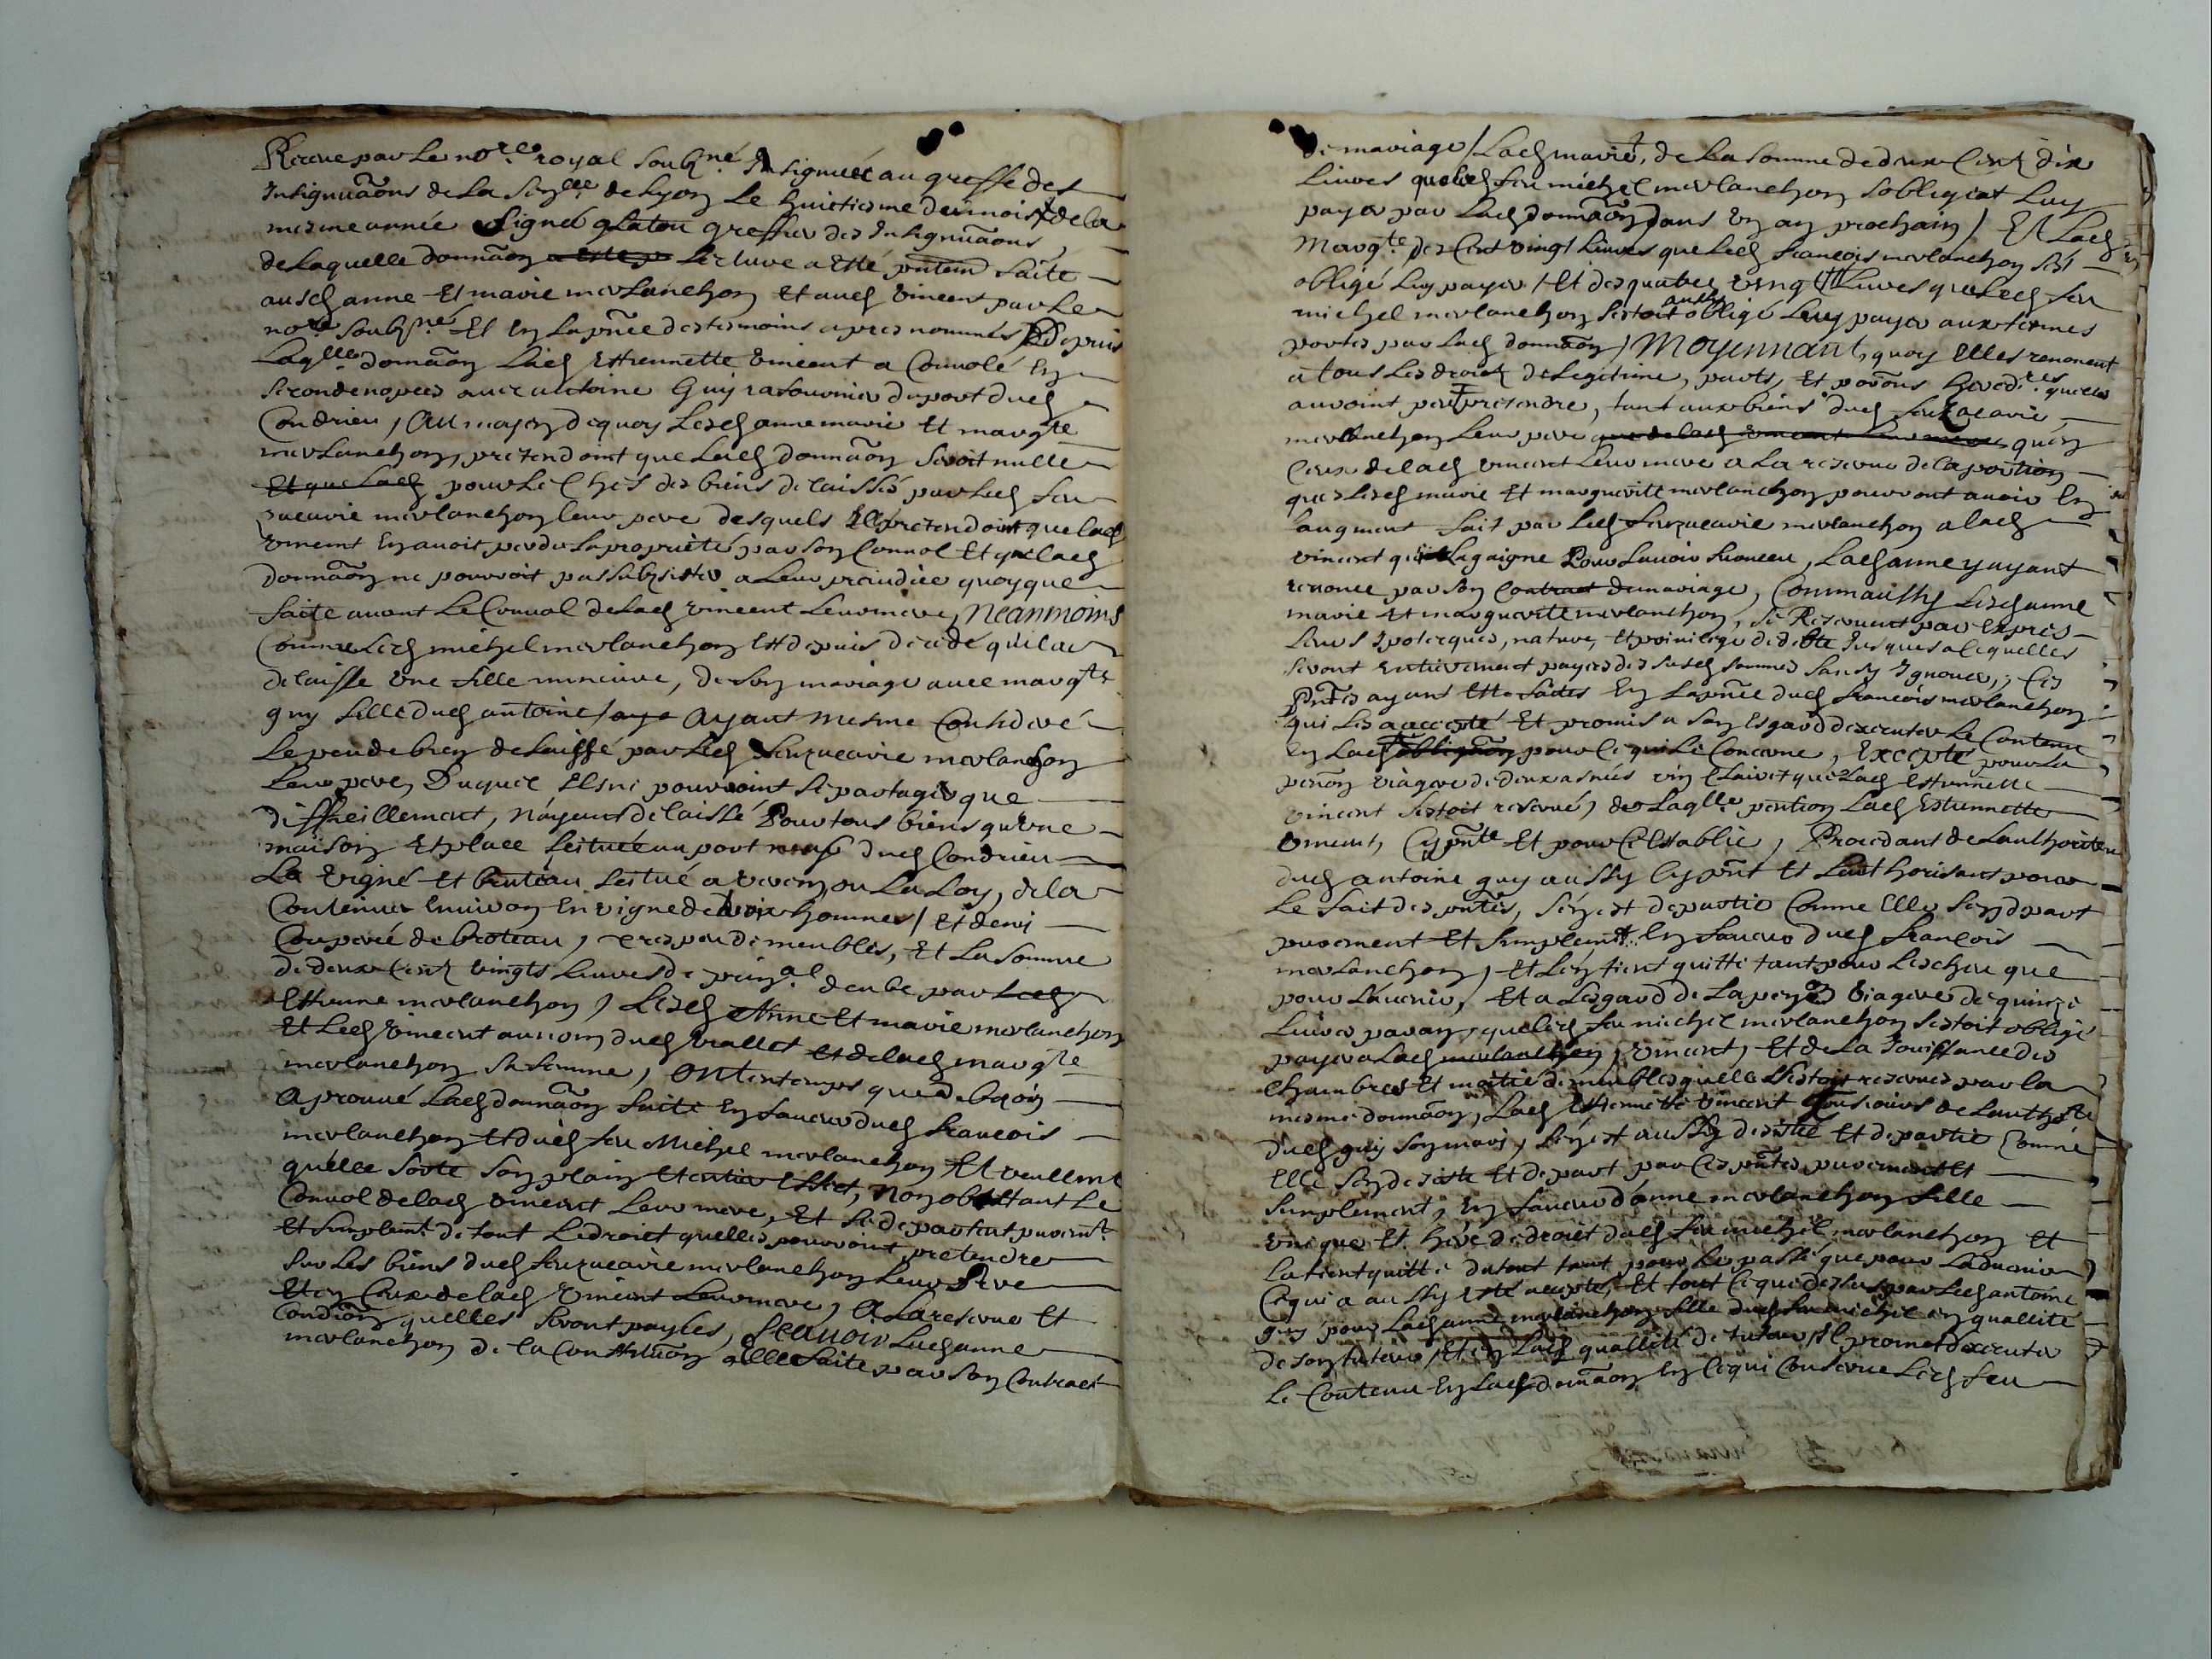 Receue par le no.re royal soubzné Insignuée au greffe des
Insignuãons de la Sen.llee de Lyon le huictiesme des mois de la
mesme année Signé glatou greffier des Insignuãons
de laquelle donnãon a este pn lecture a Esté pntem faite
ausd anne Et marie merlanchon Et aud Vincent par le
no.re soubzné Et En la pnce des tesmoins apres nommés Depuis
Laqlle donnãon Lad Ethiennette Vincent a Conuolé En
secondenopces auec antoine Guy du port dud
Condrieu, Au moyen dequoy Lesd anne marie Et margte
merlanchon, pretendoint que Lad donnãon seroit nulle
Et que Lad pour Le Chef des biens delaissés par Led feu
zacarie merlanchon leur pere desquels Ell pretendoint que lad
Vincent En auoit perdu la proprieté par son Conuol Et que lad
donnãon ne pouuoit pas subzister a Leur preiudice quoyque
faite auant Le Conuol de lad Vincent Leur mere, Neanmoins
Comme Led michel merlanchon Est depuis decedé quil a
delaisse Vne fille mineure, de son mariage auec margte
guy fille dud antoine Ayant mesme Considere
Le peu de bien delaissé par Led feu zacarie merlanchon
Leur pere, Duquel Ils ne pouuoint se partager que
difficillement, n'ayant delaissé Pour tous biens qu'Vne
maison Et place scituée au port neuf dud Condrieu
La Vigne Et brouteau scitué a Verenay ou La Loy, de la
Contenue Enuiron En vigne de trois hommes / Et demi
Couperée de broteau, tres peu de meubles, Et La somme
de deux Cent vingts Liures de prin.al deube par Led
Ethienne merlanchon, Lesd Anne Et marie merlanchon
Et Led Vincent au nom dud Vallet Et de lad margte
merlanchon sa femme, ONt en temps que de besoin
Aprouué Lad donnãon faite En faueur dud francois
merlanchon Et dud feu Michel merlanchon Et veullent
qu'elle sorte son plain Et entier Effet, Nonobstant Le
Conuol de lad Vincent Leur mere, Et se departent purem.t
Et simplem.t de tout Le droict quelles pouuoint pretendre
sur Les biens dud feu zacarie merlanchon Leur Pere
Et en Ceux de lad Vincent Leur mere, A La reserue Et
Condiõn quelles seront payées, Scauoir Lad anne
merlanchon de la Constituãon a Elle faite par son Contract
de mariage / Lad marie, de La somme de deux Cent dix
Liures que led feu michel merlanchon sobligeat Luy
payer par Lad donnãon dans Vn an prochain / Et Lad
Margte des Cent vingt Liures que Led francois merlanchon sest
obligé Luy payer / Et des quatre vingt Liures que Led feu
michel merlanchon sestoit aussy obligé Luy payer aux termes
portes par Lad donnãon / MOyennant, quoy Elles renoncent
a tous Les droits de Legitime, parts, Et porõns hered.res quelles
auroint peu pretendre, tant aux biens dud feu Zacarie
merlanchon Leur pere que de lad Vincent Leur mere qu'en
Ceux de lad Vincent Leur mere a La reserue de la portion
que Lesd marie Et marguerite merlanchon pourront auoir En
L'augment fait par Led feu zacarie merlanchon a lad
Vincent Pour Lauoir, Lad anne y ayant
renoncé par son Contract de mariage, Comm'aussy Lesd anne
marie Et marguerite merlanchon, se Reseruent par Exprès
Leurs Ypotecques, nature, Et priuilege de debte Jusques a lequelles
seront Entierement payées des susd sommes sans sy Ignouer, Ces
Pntes ayant Esté faites En La pnce dud francois merlanchon
qui Les a accepté Et promis a son Esgard dexecuter Le Contenu
En Lad pour Ce qui Le Concerne, Excepté pour La
pension viagere de deux asnées vin Clairet que Lad Ethiennette
Vincent sestoit reserué, de Laqlle pention Lad Ethiennette
Vincent, Cy pnte Et pour Ce Establie, Procedant de Lauthorité
dud antoine guy aussy Cy pnt Et Lauthorisant pour
Le fait des pntes, sen est departie Comme Elle sen depart
purement Et simplem.t En faueur dud francois
merlanchon, Et Len tient quitte tant pour Lescheu que
pour Lauenir, Et a Lesgard de La pension viagere de quinze
Liures par an, que Led feu michel merlanchon sestoit obligé
payer a Lad merlanchon, Vincent, Et de La Jouissance des
Chambres Et moitié de meubles quelle sestoit reserués par la
mesme donnãon, Lad Ethiennette Vincent Tousiours de Lauthorité
dud guy son mari, sen est aussy desisté Et departie Comme
Elle sen desiste Et depart par Ces pntes purement Et
simplement, En faueur d'anne merlanchon fille
Vnique Et here de droict dud feu michel merlanchon Et
La tient quitte du tout tant pour Le passé que pour Laduenir
Ce qui a aussy Esté accepté, Et tout Ce que dessus par Led antoine
guy pour Lad anne merlanchon fille dud feu michel en quallité
de son tuteur / Et En Lad quallité de tuteur / Il promet dexecuter
Le Contenu En Lad donnãon En Ce qui Conserne Led feu